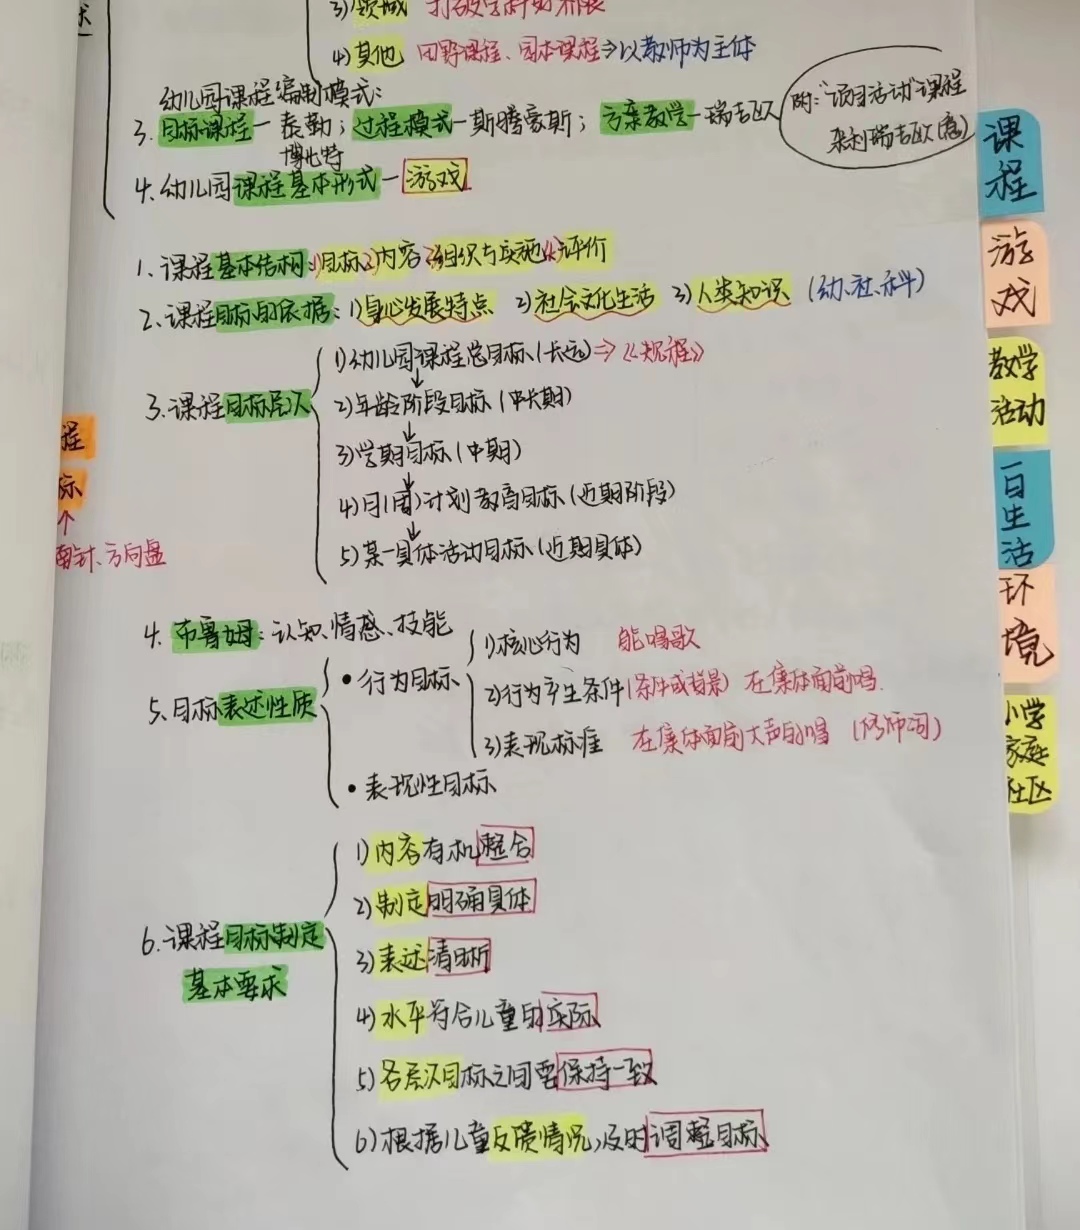 3)领域 打破学科的界限
4)其他 田野课程、园本课程⇒以教师为主体
幼儿园课程编制模式:
3.目标课程—泰勒;过程模式—斯腾豪斯;方案教学—瑞吉欧
博比特
附:“项目活动”课程
来利瑞吉欧(意)
4.幼儿园课程基本形式—游戏
1、课程基本结构:1)目标2)内容3)组织与实施4)评价
2、课程目标的依据:1)身心发展特点 2)社会文化生活 3)人类知识 (幼、社、科)
3.课程目标层次
1)幼儿园课程总目标(长远)⇒《规程》
↓
2)年龄阶段目标(中长期)
↓
3)学期目标(中期)
↓
4)月(周)计划教育目标(近期阶段)
↓
5)某一具体活动目标(近期具体)
程
标
↑
南针、方向盘
4.布鲁姆:认知、情感、技能
5、目标表述性质
•行为目标
1)核心行为 能唱歌
2)行为产生条件(条件或背景) 在集体面前唱.
3)表现标准 在集体面前大声的唱 (修饰词)
•表现性目标
6.课程目标制定
基本要求
1)内容有机整合
2)制定明确具体
3)表述清晰
4)水平符合儿童的实际
5)各层次目标之间要保持一致
6)根据儿童反馈情况,及时调整目标
课程
游戏
教学
活动
一日生活
环境
小学
家庭
社区